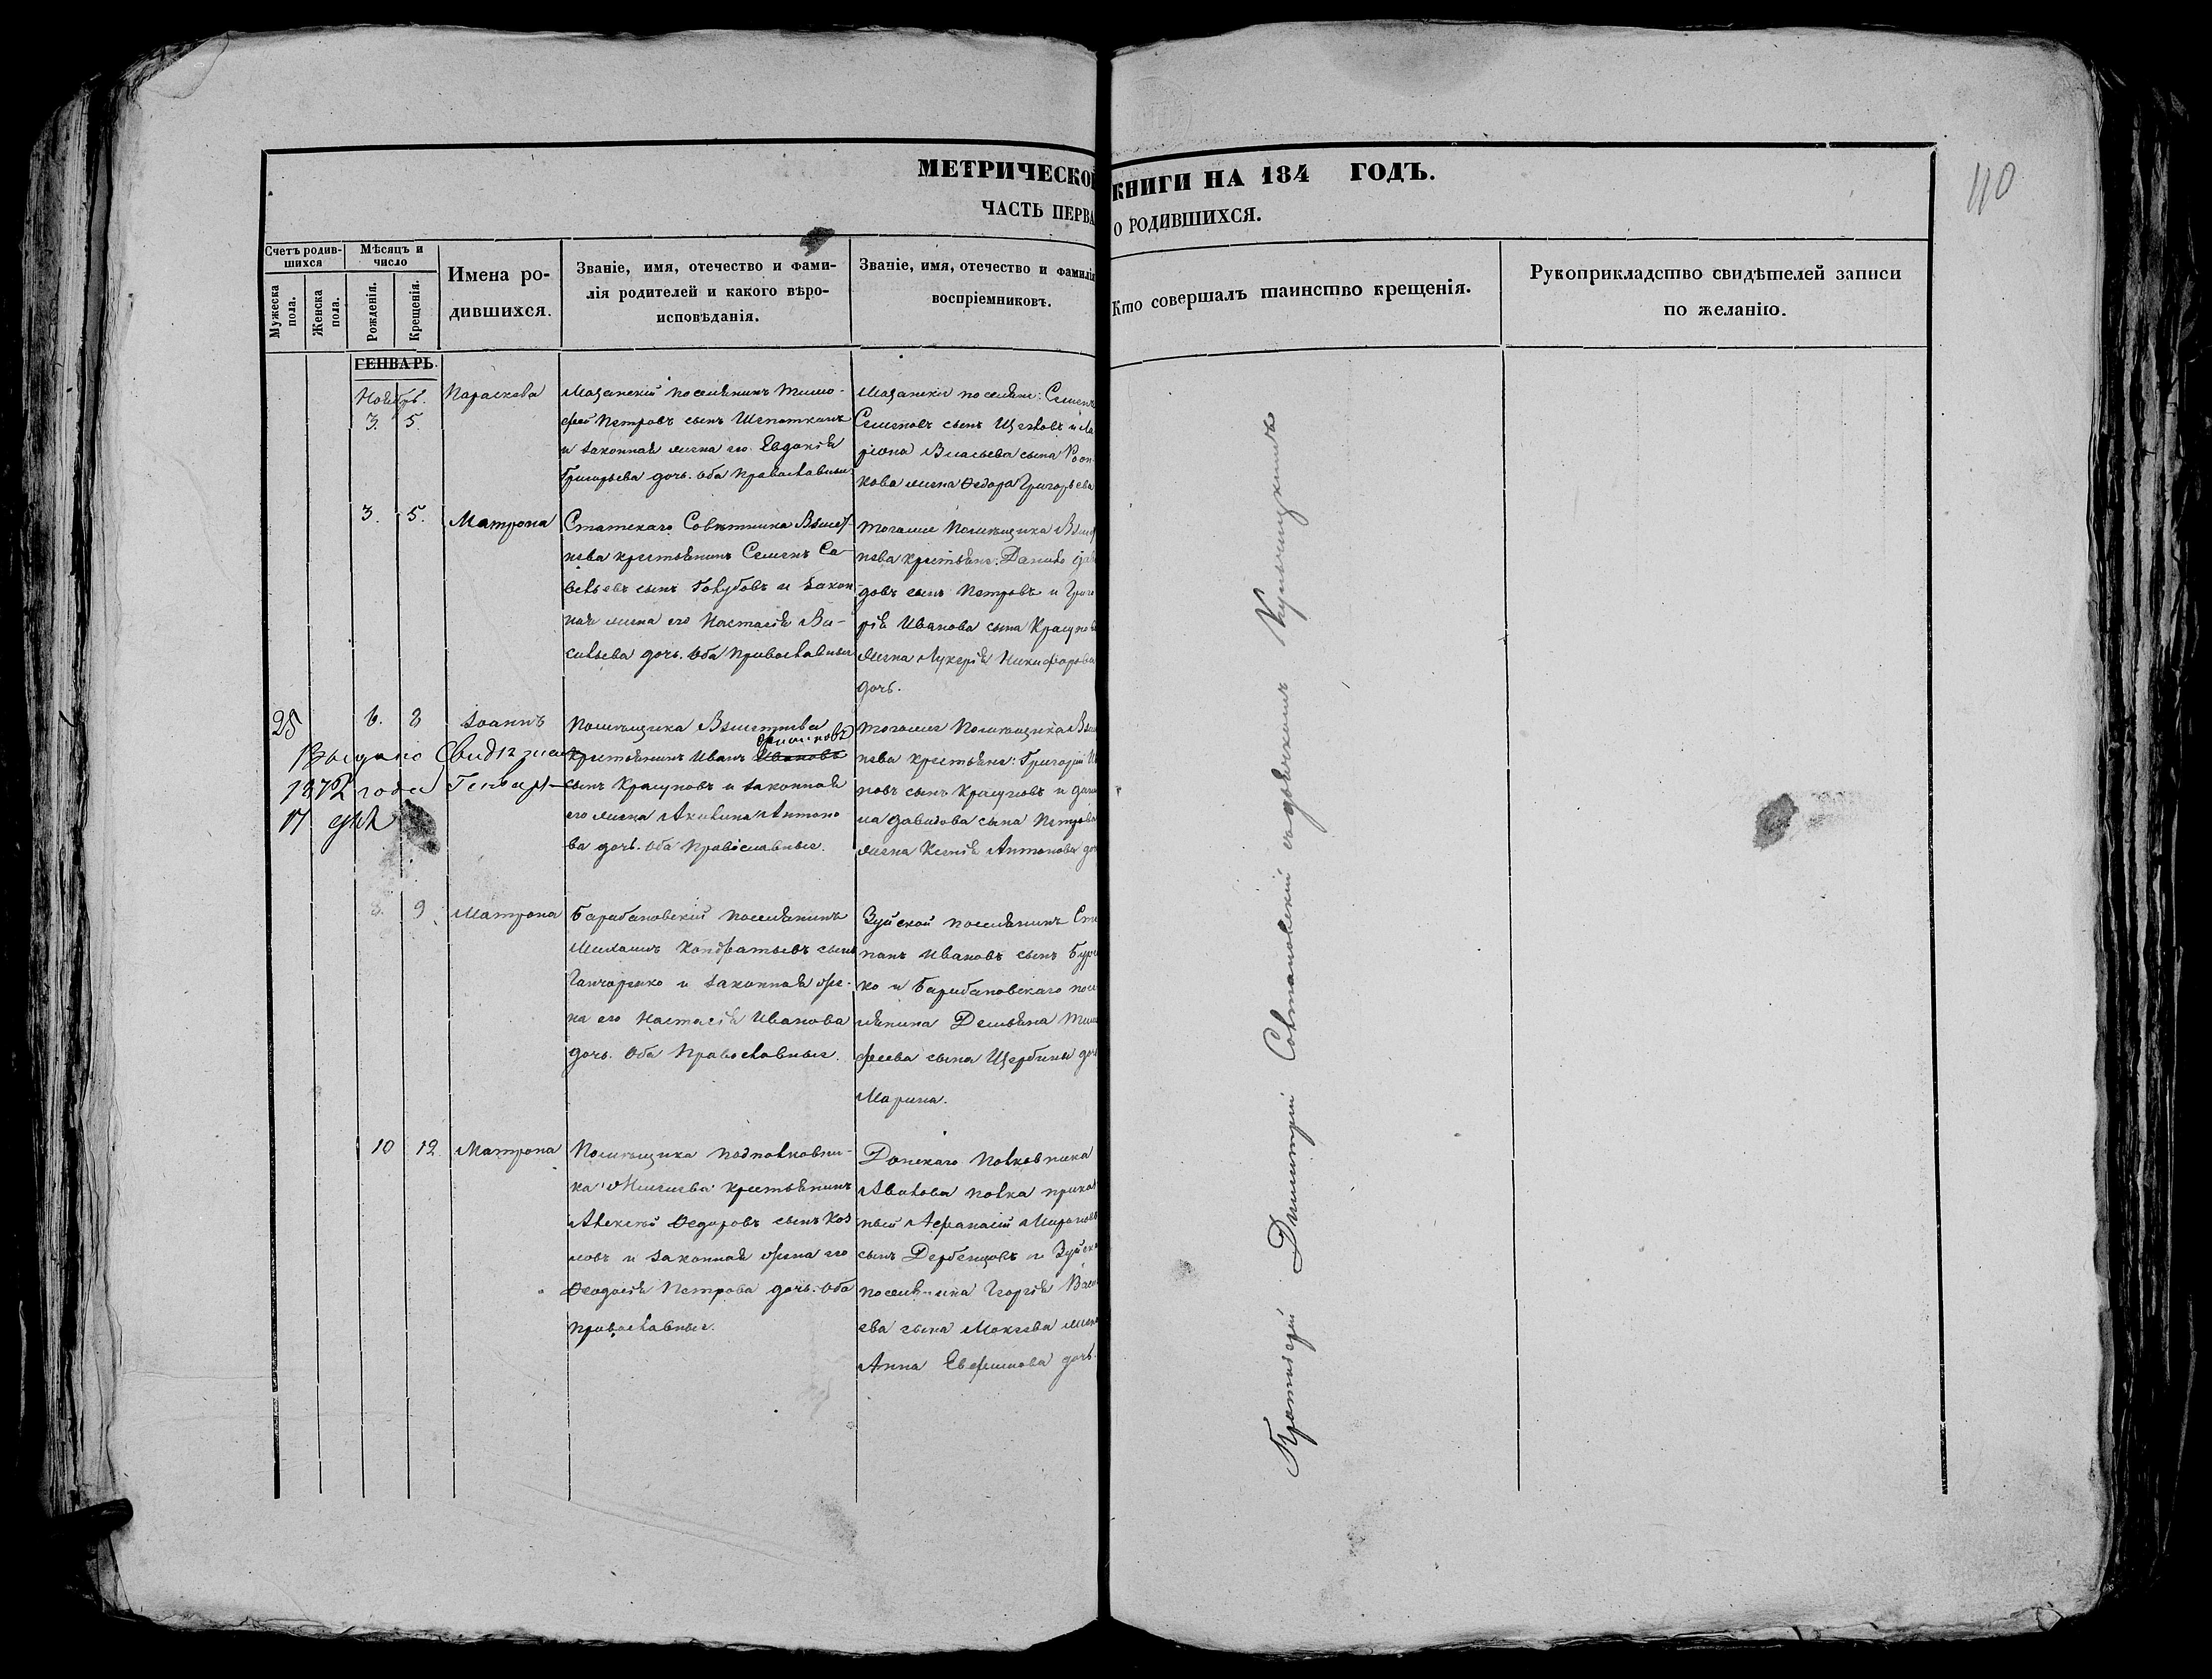 МЕТРИЧЕСКОЙ КНИГИ НА 184 ГОДЪ.
ЧАСТЬ ПЕРВА О РОДИВШИХСЯ.
110
Счетъ родив-
шихся
Мужеска пола.
Женска пола.
Мѣсяцъ и
число
Рожденія.
Крещенія.
Имена ро-
дившихся.
Званіе, имя, отечество и фами-
лія родителей и какого вѣро-
исповѣданія.
Званіе, имя, отечество и фамилія
воспріемниковъ.
Кто совершалъ таинство крещенія.
Рукоприкладство свидѣтелей записи
по желанію.
ГЕНВАРЬ.
Ноябрь.
3. 5.
Параскева
Мазанскій поселянинъ Тимо-
фей Петровъ сынъ
и законная жена его Евдокія
Григорьева дочь. Оба православные
Мазанскіе поселяне: Семенъ
Семеновъ сынъ и Ла
ріона сына
кова жена Ѳедора Григорьева
3. 5.
Матрона
Статскаго Совѣтника
нева крестьянинъ Семенъ Са-
вельевъ сынъ Голубовъ и закон
ная жена его Настасія Ва-
сильева дочь. Оба православные
Тогоже Помѣщика
нева крестьяне: Данило Дави
довъ сынъ Петровъ и Григо
рія Иванова сына
жена Лукерія Никифорова
дочь.
25
6. 8
Іоаннъ
Помѣщика
крестьянинъ Иванъ Ивановъ
сынъ и законная
его жена Акилина Антоно
ва дочь. Оба Православные.
Тогоже Помѣщика
нева крестьяне: Григорій Ива
новъ сынъ и Дани
ла Давидова сына Петрова
жена Ксенія Антонова доч
Выдано Свид
1872 года Генваря
17 дня
8. 9
Матрона
Барабановскій поселянинъ
Михаилъ Кондратьевъ сынъ
Ганчаренко и законная же-
на его Настасія Иванова
дочь. Оба Православные.
Зуйской поселянинъ Сте
панъ Ивановъ сынъ
ко и Барабановскаго посе
лянина Демьяна Тимо
феева сына Щербины доч
Марина.
10 12
Матрона
Помѣщика подполковни-
ка крестьянинъ
Алексѣй Ѳедоровъ сынъ Коз
ловъ и законная жена его
Ѳеодосія Петрова дочь. Оба
православные.
Донскаго Полковника
полка приказ
ный Афанасій Мироновъ
сынъ Дербенцовъ и Зуйска
поселянина Георгія
ева сына Мокеева жена
Анна Евфимова дочь.
Протоіерей Димитрій